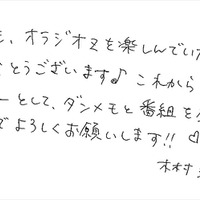 も、オラジオヌを楽しんでい
とうございます♪ これから
ーとして、ダンメモと番組を
でよろしくお願いします!! ♡
木村